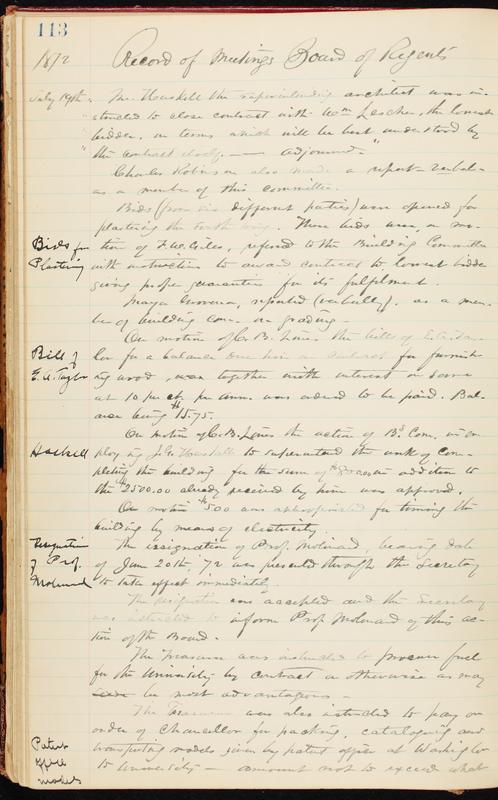 113
1872
Record of Meetings Board of Regents
July 19th. Mr. Haskell the superintending architect was in-
structed to close contract with Wm Lescher, the lowest
bidder, on terms which will be best understood by
the contract
adjourned."
Charles Robinson also made a report verbal-
as a member of this committee.
Bids (from six different parties) were opened for
plastering the north wing. These bids, were, on mo-
Bids for
Plastering
tion of F.W. Giles, referred to the Building Committee
with instructions to award contract to lowest bidder
giving proper guarantees for its fulfilment.
reported (verbally), as a mem-
ber of building com. on grading.
On motion of C. B. Lines the bill of E. A. Tay-
Bill of
E. A. Taylor
lor for a balance due him on contract for furnish-
ing wood, was together with interest on same
at 10 per ct. per ann. was ordered to be paid. Bal-
ance being $15.75.
On motion of C. B. Lines the action of Bg Com. in em-
Haskell
ploying J. G. Haskell to superintend the work of com-
pleting the building for the sum of in addition to
the $2500.00 already received by him was approved.
On motion $500 was appropriated for the
building by means of electricity.
Resignation
of Prof.
Molinard
The resignation of Prof. Molinard, bearing date
of June 20th, '72 was presented through the Secretary
to take effect immediately.
The resignation was accepted and the Secretary
was instructed to inform Prof Molinard of this ac-
tion of the Board.
The Treasurer was instructed to procure fuel
for the University by contract or otherwise as may
be most advantageous -
The Treasurer was also instructed to pay on
order of Chancellor for packing, cataloguing and
Patent
office
models
transporting models given by patent office at Washington
to University - amount not to exceed what